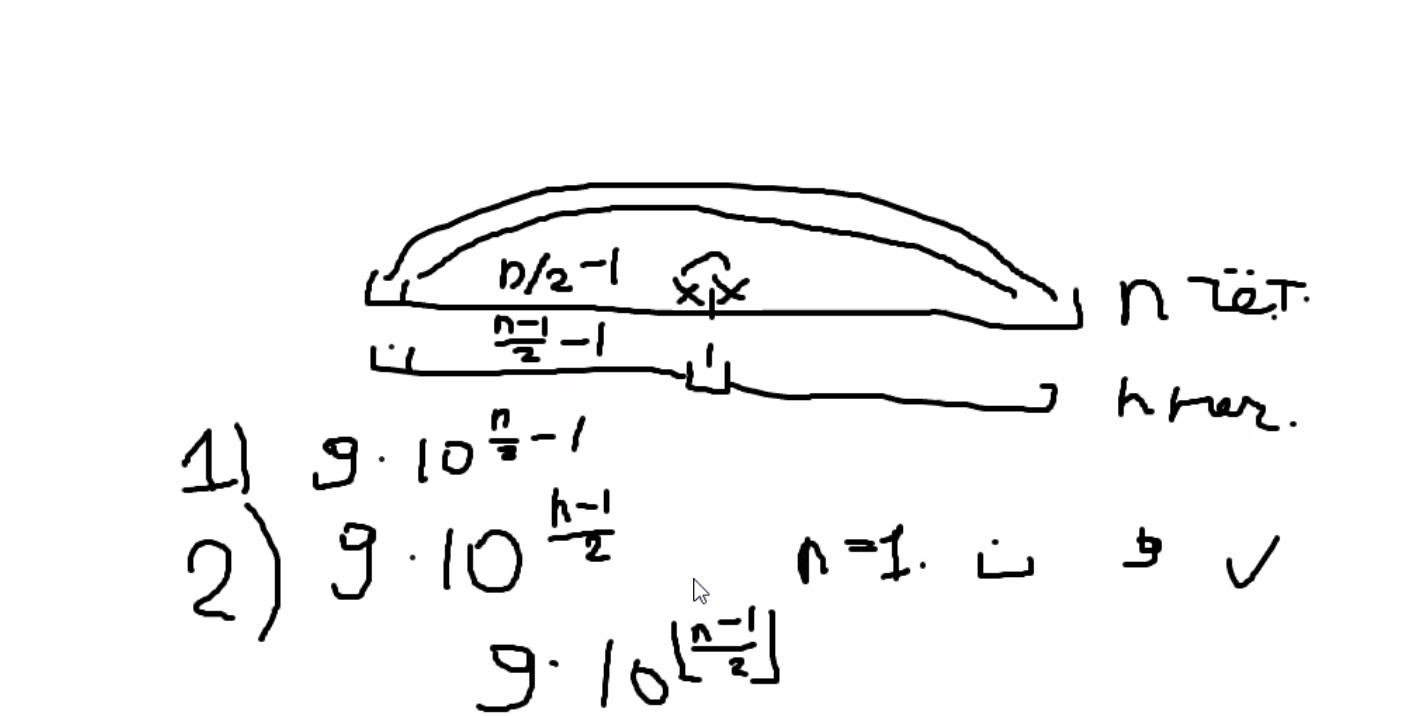 n/2 -1
x x n чёт.
\frac{n-1}{2} - 1 1
n неч.
1) 9 · 10^{\frac{n}{2} - 1}
2) 9 · 10^{\frac{n-1}{2}} n=1. 9 ✓
9 · 10^{⌊\frac{n-1}{2}⌋}